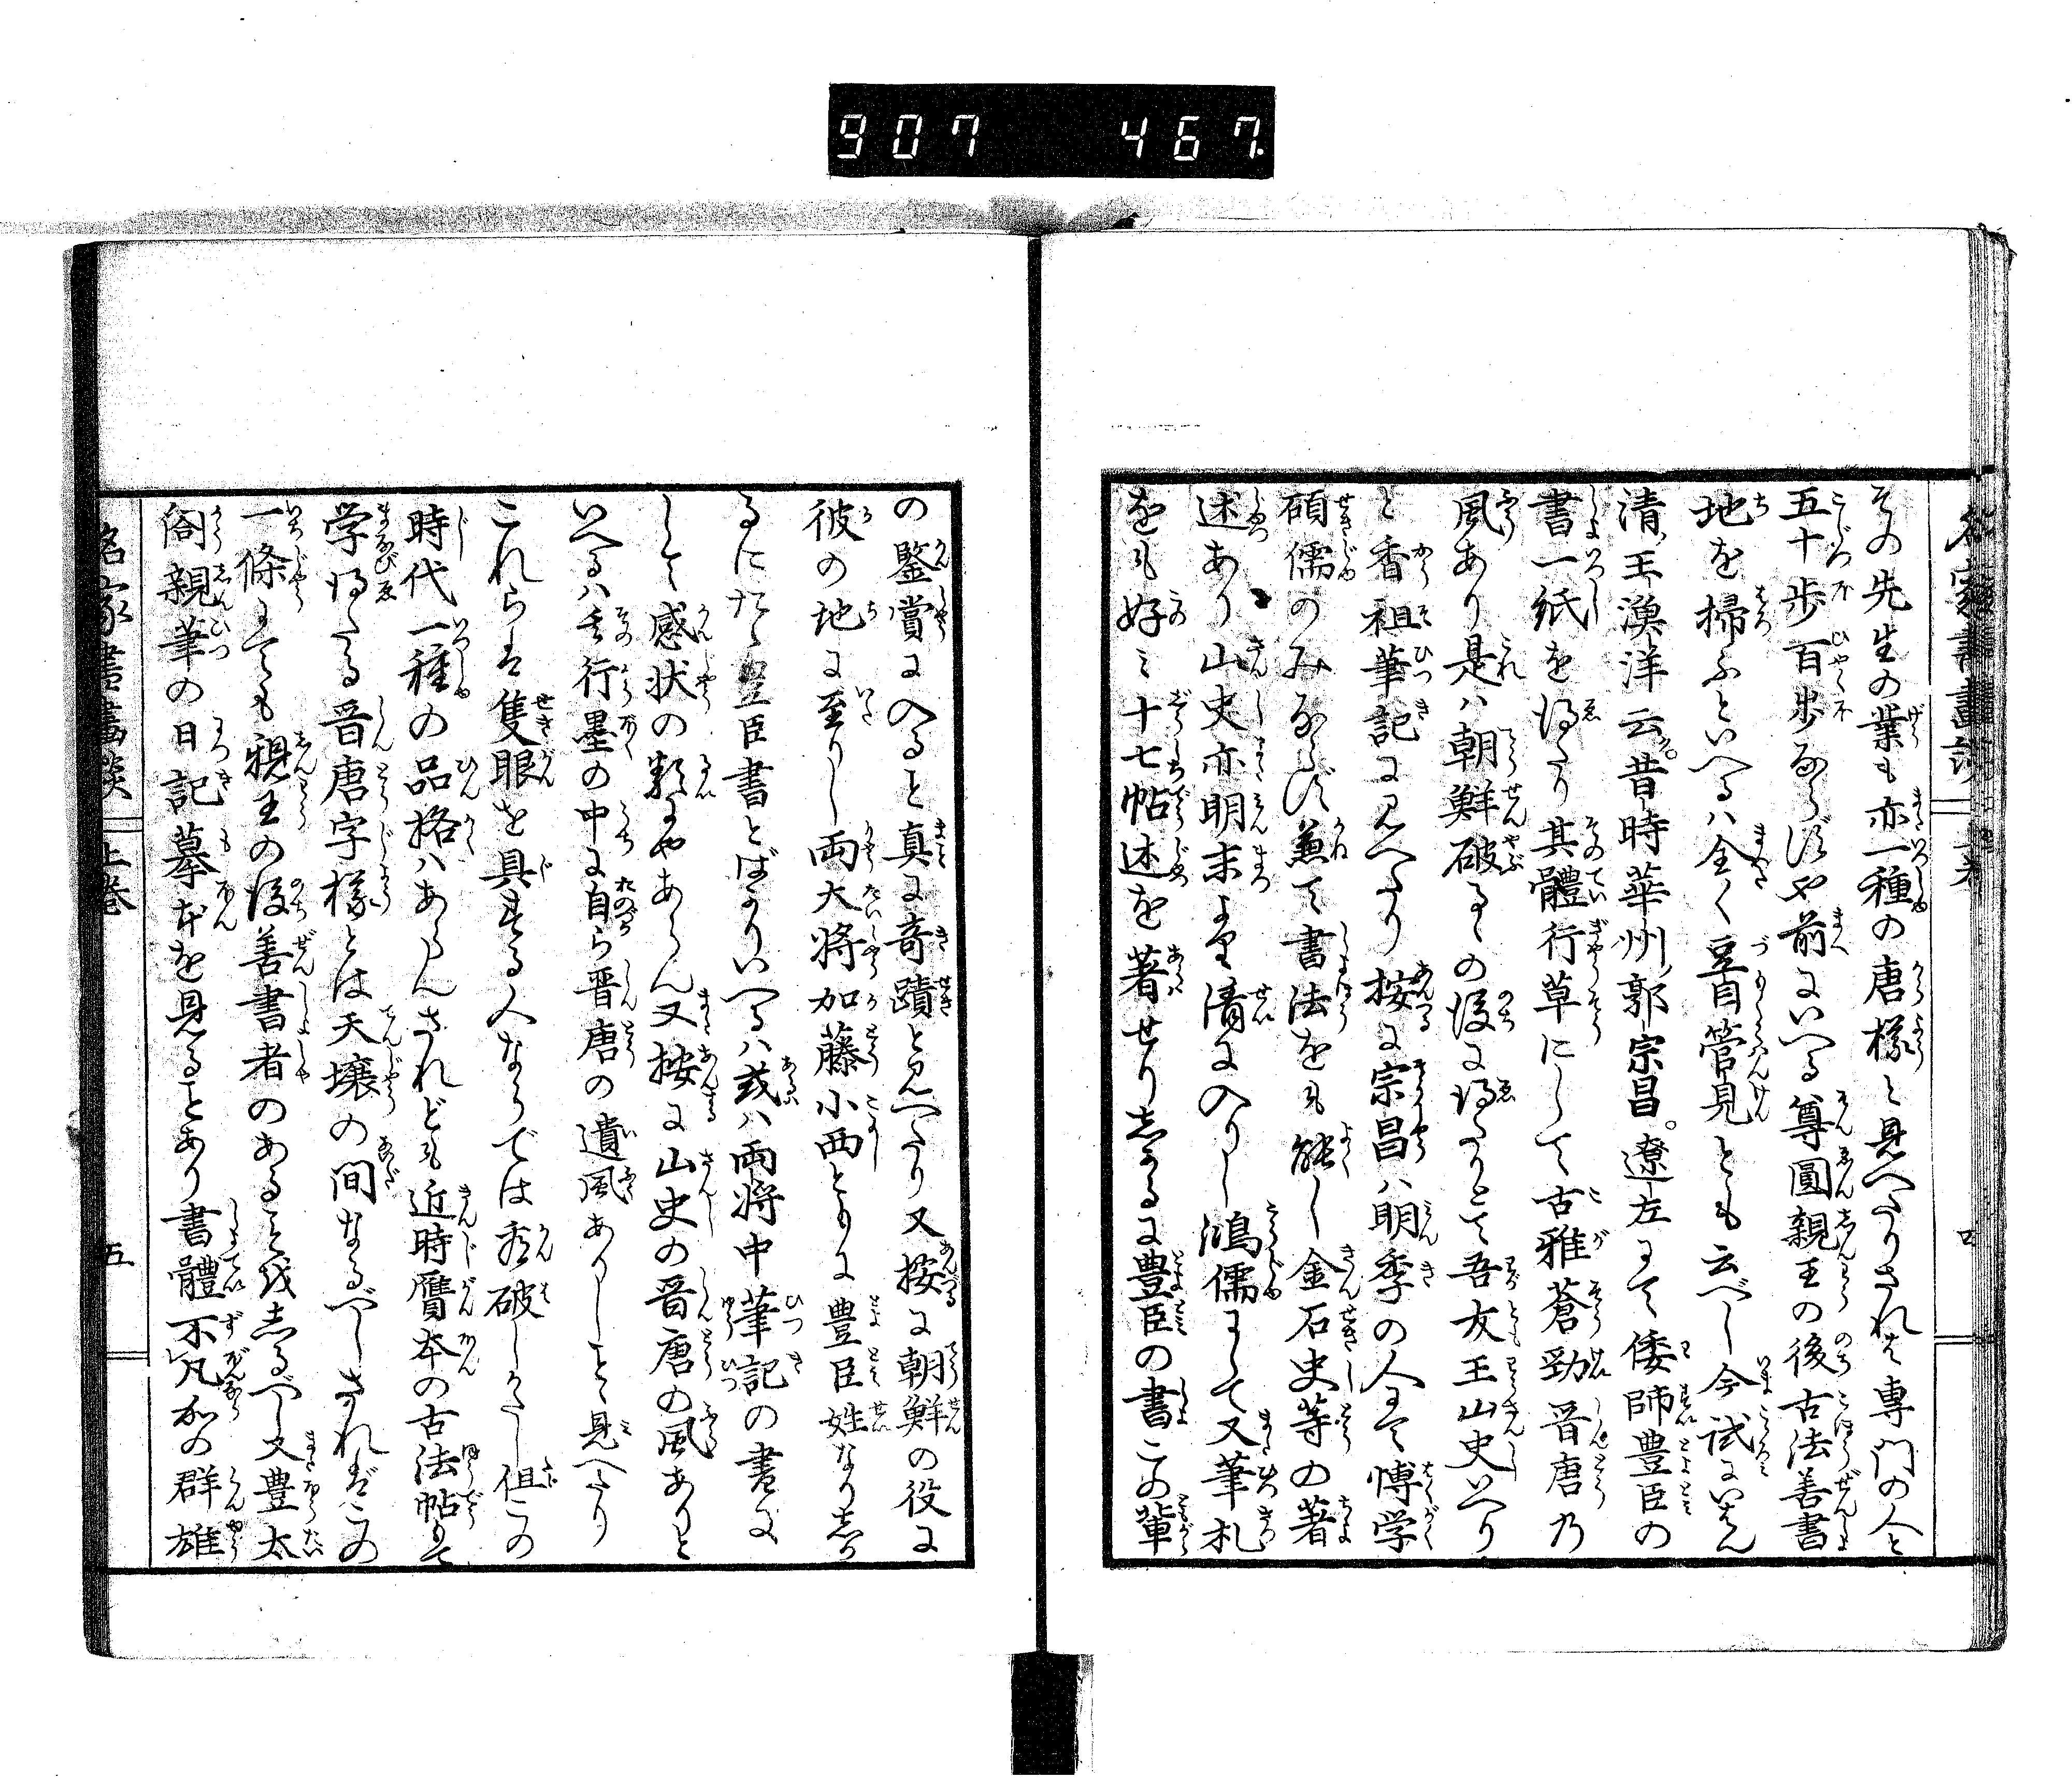 907 467.
名家書畫談 上巻 四
その先生の業も亦一種の唐様と見へたりされは専門の人と
五十歩百歩ならずや前にいへる尊圓親王の後古法善書
地を掃ふといへるハ全く豆目管見とも云べし今試にいはん
清王漁洋云昔時華州郭宗昌遼左にて倭師豊臣の
書一紙を得たり其體行草にして古雅蒼勁晋唐乃
風あり是ハ朝鮮破るゝの後に得たりとて吾友王山史いへり
と香祖筆記に見へたり按に宗昌ハ明季の人にて博学
碩儒のみならず兼て書法をも能し金石史等の著
述あり山史亦明末より清に入りし鴻儒にして又筆札
をも好ミ十七帖述を著せりしかるに豊臣の書この輩
の鑒賞に入ると真に奇蹟と見へたり又按に朝鮮の役に
彼の地に至りし両大将加藤小西ともに豊臣姓なりしか
るにたゝ豊臣書とばかりいへるハ或ハ両将中筆記の書に
して感状の類にやあらん又按に山史の晋唐の風ありと
いへるハ其行墨の中に自ら晋唐の遺風ありしことゝ見へたり
これらは隻眼を具する人ならでは看破しかたし但この
時代一種の品格ハあらんされども近時贋本の古法帖にて
学得たる晋唐字様とは天壌の間なるべしさればこの
一條にても親王の後善書者のあることを知るべし又豊太
閤親筆の日記摹本を見ることあり書體不凡かの群雄
名家書畫談 上巻 五